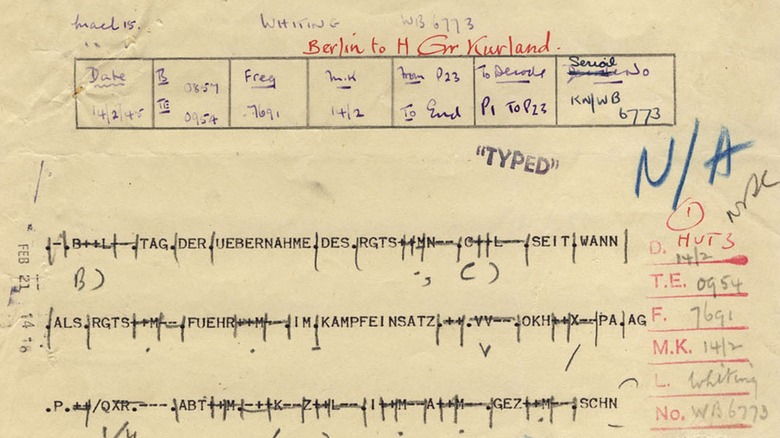 Mael 15. WHITING WB 6773
" "
Berlin to H Gr Kurland.
Date B 0857 Freq M.K From P23 To Decode Serial No
14/2/45 TE 0954 7691 14/2 To End P1 TO P23 KN/WB 6773
"TYPED"
N/A
1
-.B++L--.TAG.DER.UEBERNAHME.DES.RGTS++MN--C++L---SEIT.WANN
B) ., C)
D. HUT3 14/2
T.E. 0954
.ALS.RGTS++M--FUEHR++M--IM.KAMPFEINSATZ.++.VV---OKH++X--PA.AG
F. 7691
M.K. 14/2
L. Whiting
.P.++/QXR.----.ABT++M.-++K--Z++L--I++M--A++M--GEZ++M--SCHN
No. WB6773
FEB 21 14 16